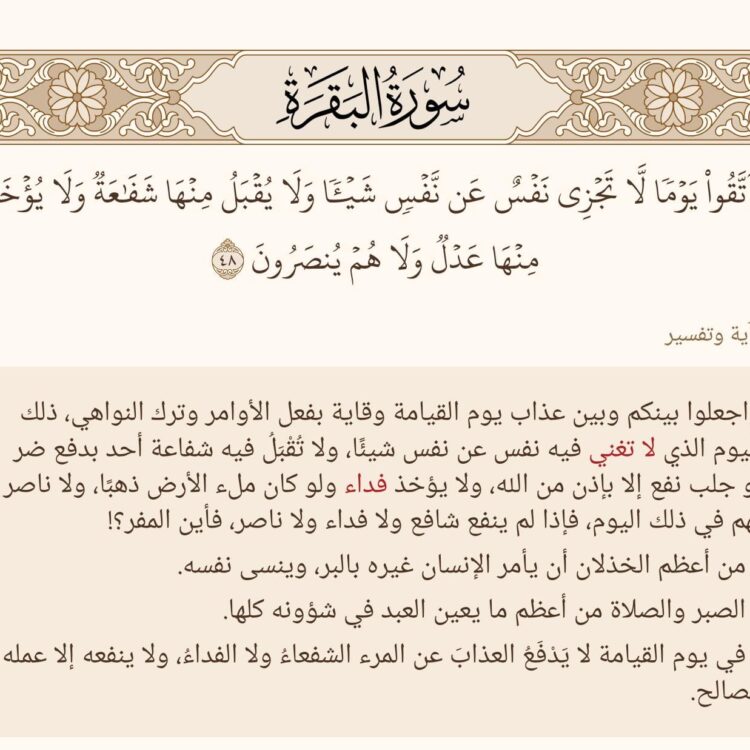 سُورَةُ البَقَرَةِ
تَّقُواْ يَوۡمٗا لَّا تَجۡزِي نَفۡسٌ عَن نَّفۡسٖ شَيۡـٔٗا وَلَا يُقۡبَلُ مِنۡهَا شَفَٰعَةٞ وَلَا يُؤۡخَ
مِنۡهَا عَدۡلٞ وَلَا هُمۡ يُنصَرُونَ ٤٨
ية وتفسير
اجعلوا بينكم وبين عذاب يوم القيامة وقاية بفعل الأوامر وترك النواهي، ذلك
ليوم الذي لا تغني فيه نفس عن نفس شيئًا، ولا تُقْبَلُ فيه شفاعة أحد بدفع ضر
و جلب نفع إلا بإذن من الله، ولا يؤخذ فداء ولو كان ملء الأرض ذهبًا، ولا ناصر
هم في ذلك اليوم، فإذا لم ينفع شافع ولا فداء ولا ناصر، فأين المفر؟!
من أعظم الخذلان أن يأمر الإنسان غيره بالبر، وينسى نفسه.
الصبر والصلاة من أعظم ما يعين العبد في شؤونه كلها.
في يوم القيامة لا يَدْفَعُ العذابَ عن المرء الشفعاءُ ولا الفداءُ، ولا ينفعه إلا عمله
صالح.